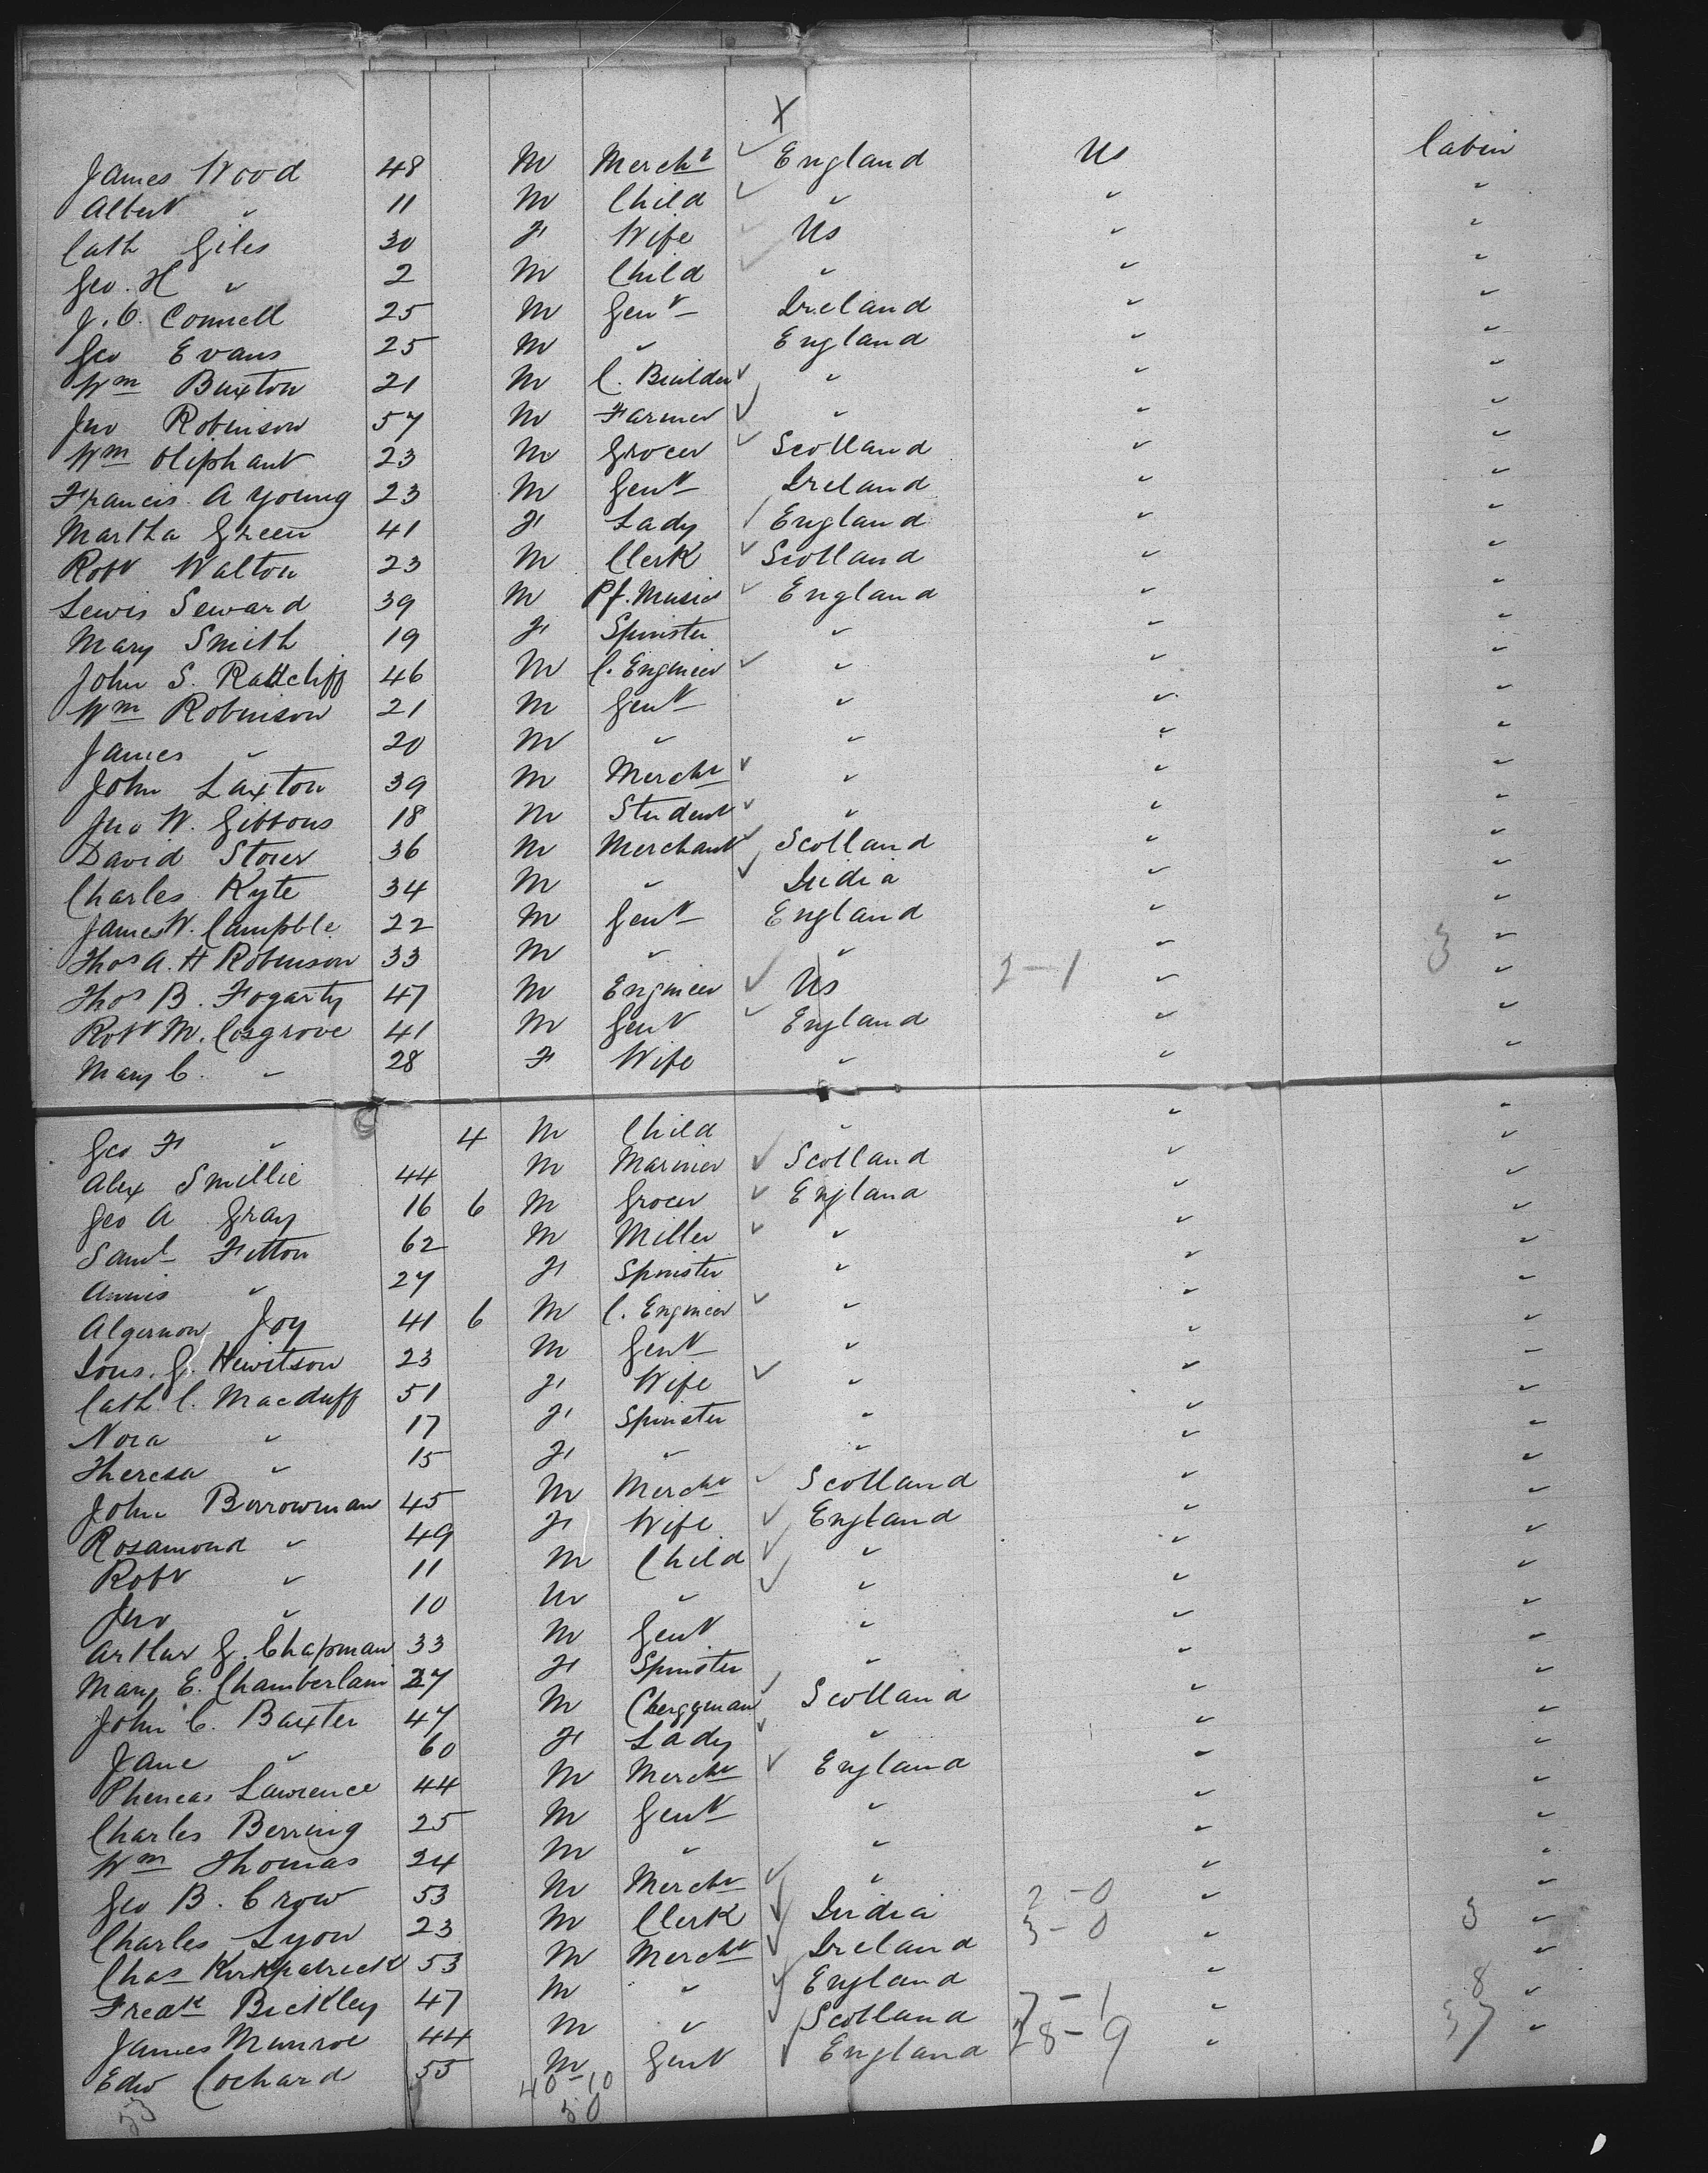 X
James Wood 48 M Mercht ✓ England Us Cabin
Albert " 11 M Child ✓ " " "
Cath Giles 30 F Wife Us " "
Geo. H " 2 M Child " " "
J. C. Connell 25 M Gent Ireland " "
Geo Evans 25 M " England " "
Wm Buxton 21 M C. Builder ✓ " " "
Jno Robinson 57 M Farmer ✓ " " "
Wm Oliphant 23 M Grocer ✓ Scotland " "
Francis A Young 23 M Gent Ireland " "
Martha Green 41 F Lady ✓ England " "
Robt Walton 23 M Clerk ✓ Scotland " "
Lewis Seward 39 M Pf. Music ✓ England " "
Mary Smith 19 F Spinster " " "
John S. Rattcliff 46 M C. Engineer ✓ " " "
Wm Robinson 21 M Gent " " "
James " 20 M " " " "
John Laxton 39 M Mercht ✓ " " "
Jno W. Gibbons 18 M Student ✓ " " "
David Storer 36 M Merchant ✓ Scotland " "
Charles Kyte 34 M " ✓ India " "
James W. Campble 22 M Gent England " "
Thos A. H Robinson 33 M " " " 3 "
Thos B. Fogarty 47 M Engineer ✓ Us 2-1 " "
Robt M. Cosgrove 41 M Gent ✓ England " "
Mary C. " 28 F Wife " " "
Geo F " 4 M Child " " "
Alex Smillie 44 M Mariner ✓ Scotland " "
Geo A Gray 16 6 M Grocer ✓ England " "
Saml Fitton 62 M Miller ✓ " " "
Annis " 27 F Spinster " " "
Algernon Joy 41 6 M C. Engineer ✓ " " "
G. Hewitson 23 M Gent " " "
Cath. C. Macduff 51 F Wife ✓ " " "
Nora " 17 F Spinster " " "
Theresa " 15 F " " " "
John Borrowman 45 M Mercht ✓ Scotland " "
Rosamond " 49 F Wife ✓ England " "
Robt " 11 M Child ✓ " " "
Jno " 10 M " ✓ " " "
Arthur G. Chapman 33 M Gent " " "
Mary E. Chamberlain 27 F Spinster " " "
John C. Baxter 47 M Clergyman ✓ Scotland " "
Jane " 60 F Lady ✓ " " "
Pheneas Lawrence 44 M Mercht ✓ England " "
Charles Berring 25 M Gent " " "
Wm Thomas 24 M " " " "
Geo B. Crow 53 M Mercht ✓ " " "
Charles Lyon 23 M Clerk ✓ India 2-0 " "
Chas Kirkpatrick 53 M Mercht ✓ Ireland 3-0 " 3 "
Fredk Bickley 47 M " ✓ England " "
James Munroe 44 M " ✓ Scotland 7-1 " 8 "
Edw Cochard 55 M Gent ✓ England 28-9 " 37 "
40-10
50
53